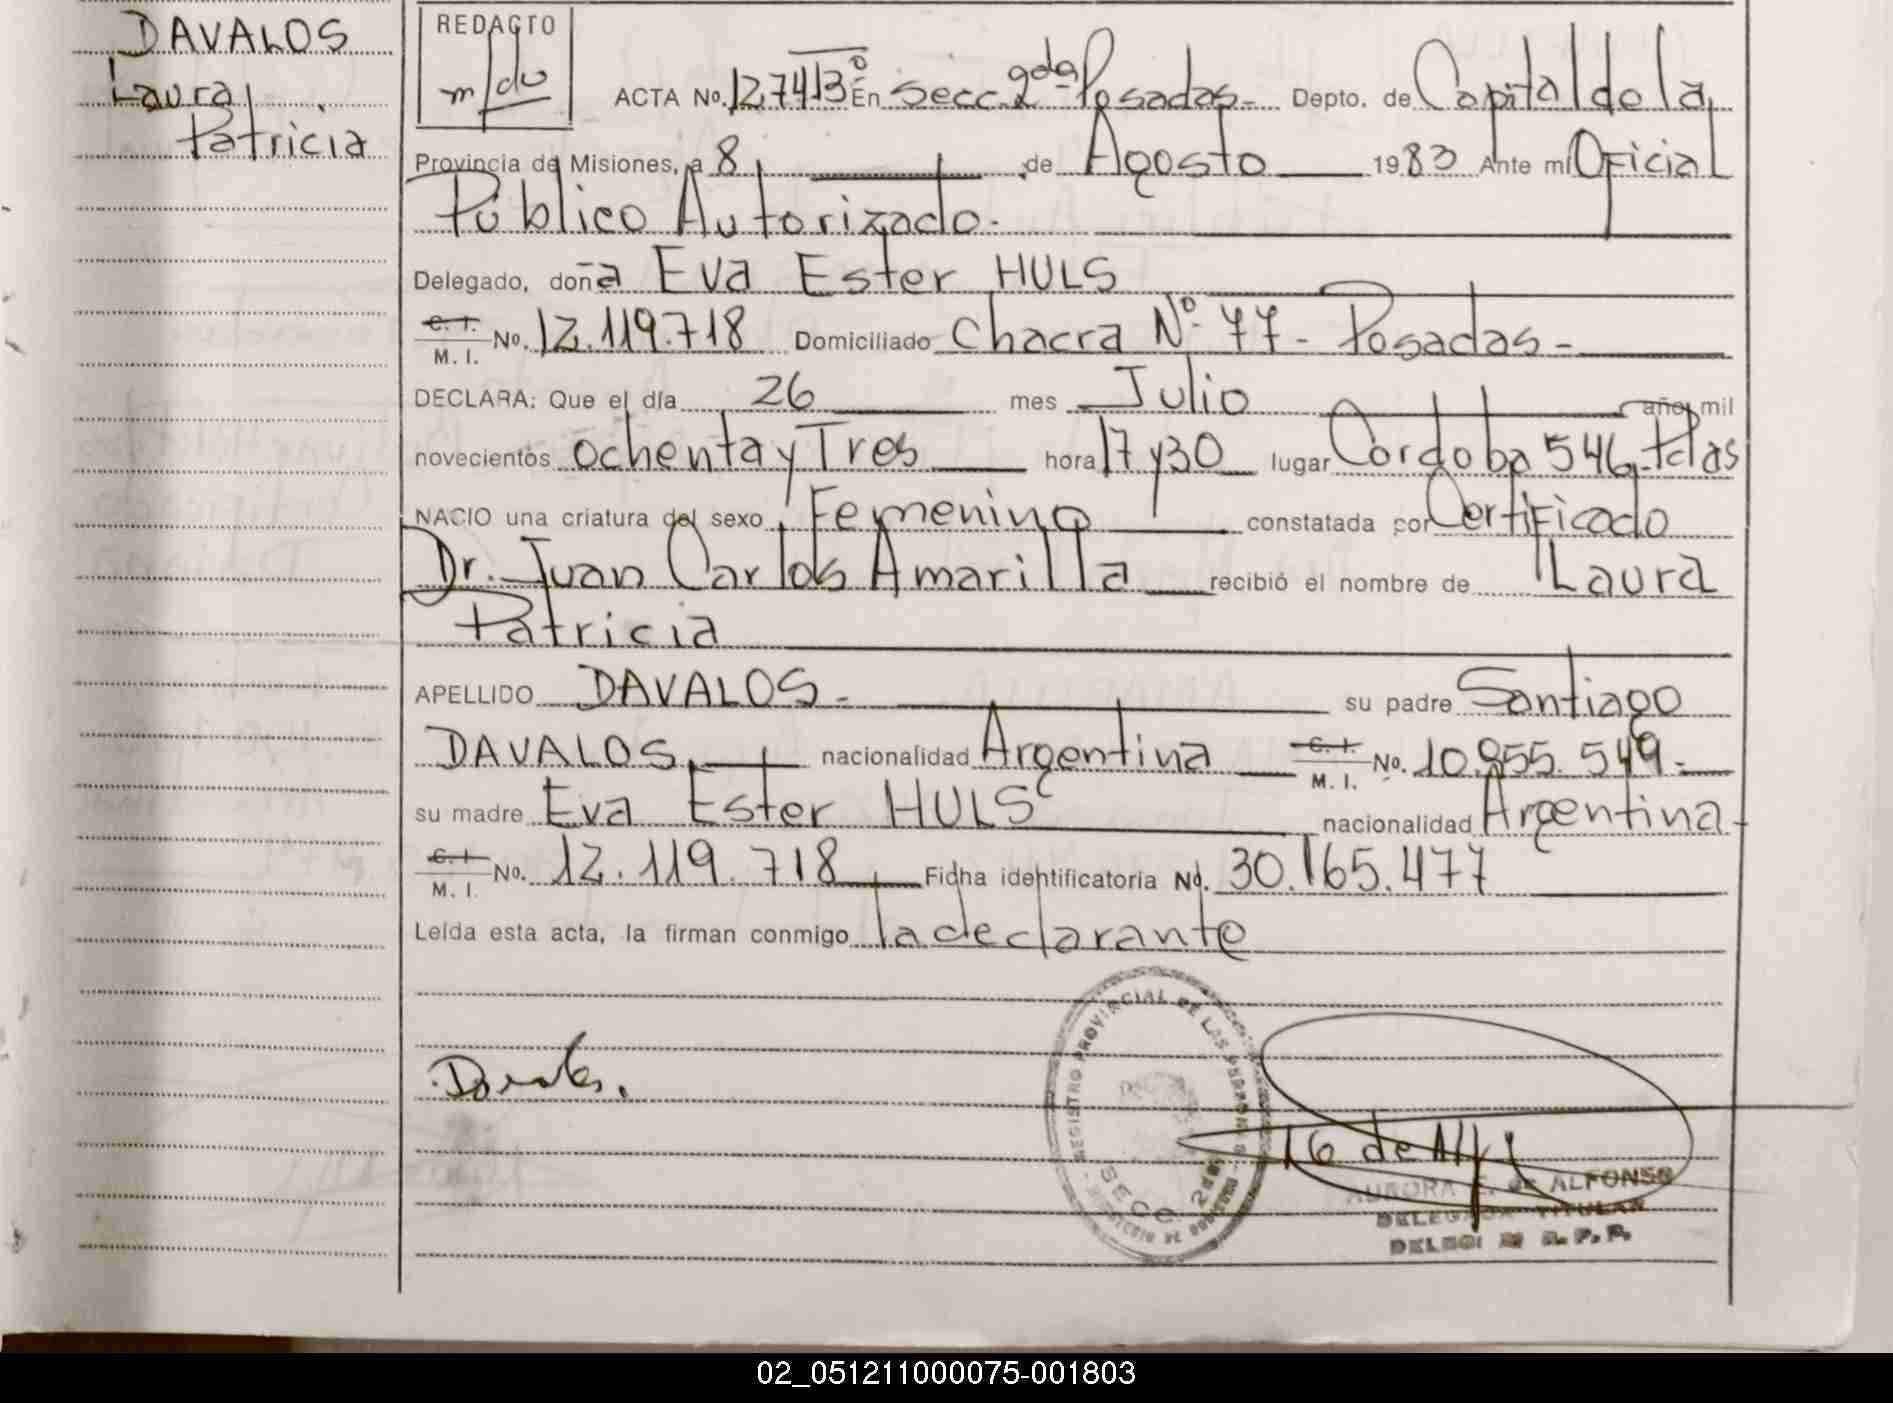 DAVALOS
Laura
Patricia
REDACTO
ACTA No. 1274 13º En Secc. 2da Posadas- Depto. de Capital de la
Provincia de Misiones, a 8 de Agosto 1983 Ante mí Oficial
Público Autorizado.
Delegado, doña Eva Ester HULS
C. I. M. I. No. 12.119.718 Domiciliado Chacra Nº 77 - Posadas -
DECLARA: Que el día 26 mes Julio año mil
novecientos ochenta y Tres hora 17 y 30 lugar Cordoba 546 Pdas
NACIO una criatura del sexo Femenino constatada por Certificado
Dr. Juan Carlos Amarilla recibió el nombre de Laura
Patricia
APELLIDO DAVALOS - su padre Santiago
DAVALOS nacionalidad Argentina C. I. M. I. No. 10.855.549 -
su madre Eva Ester HULS nacionalidad Argentina
C. I. M. I. No. 12.119.718 Ficha identificatoria No. 30.165.477
Leída esta acta, la firman conmigo la declarante
REGISTRO PROVINCIAL DE LAS PERSONAS
SECC. 2da
AURORA E. de ALFONSO
DELEGADA TITULAR
R. P. P.
02_051211000075-001803